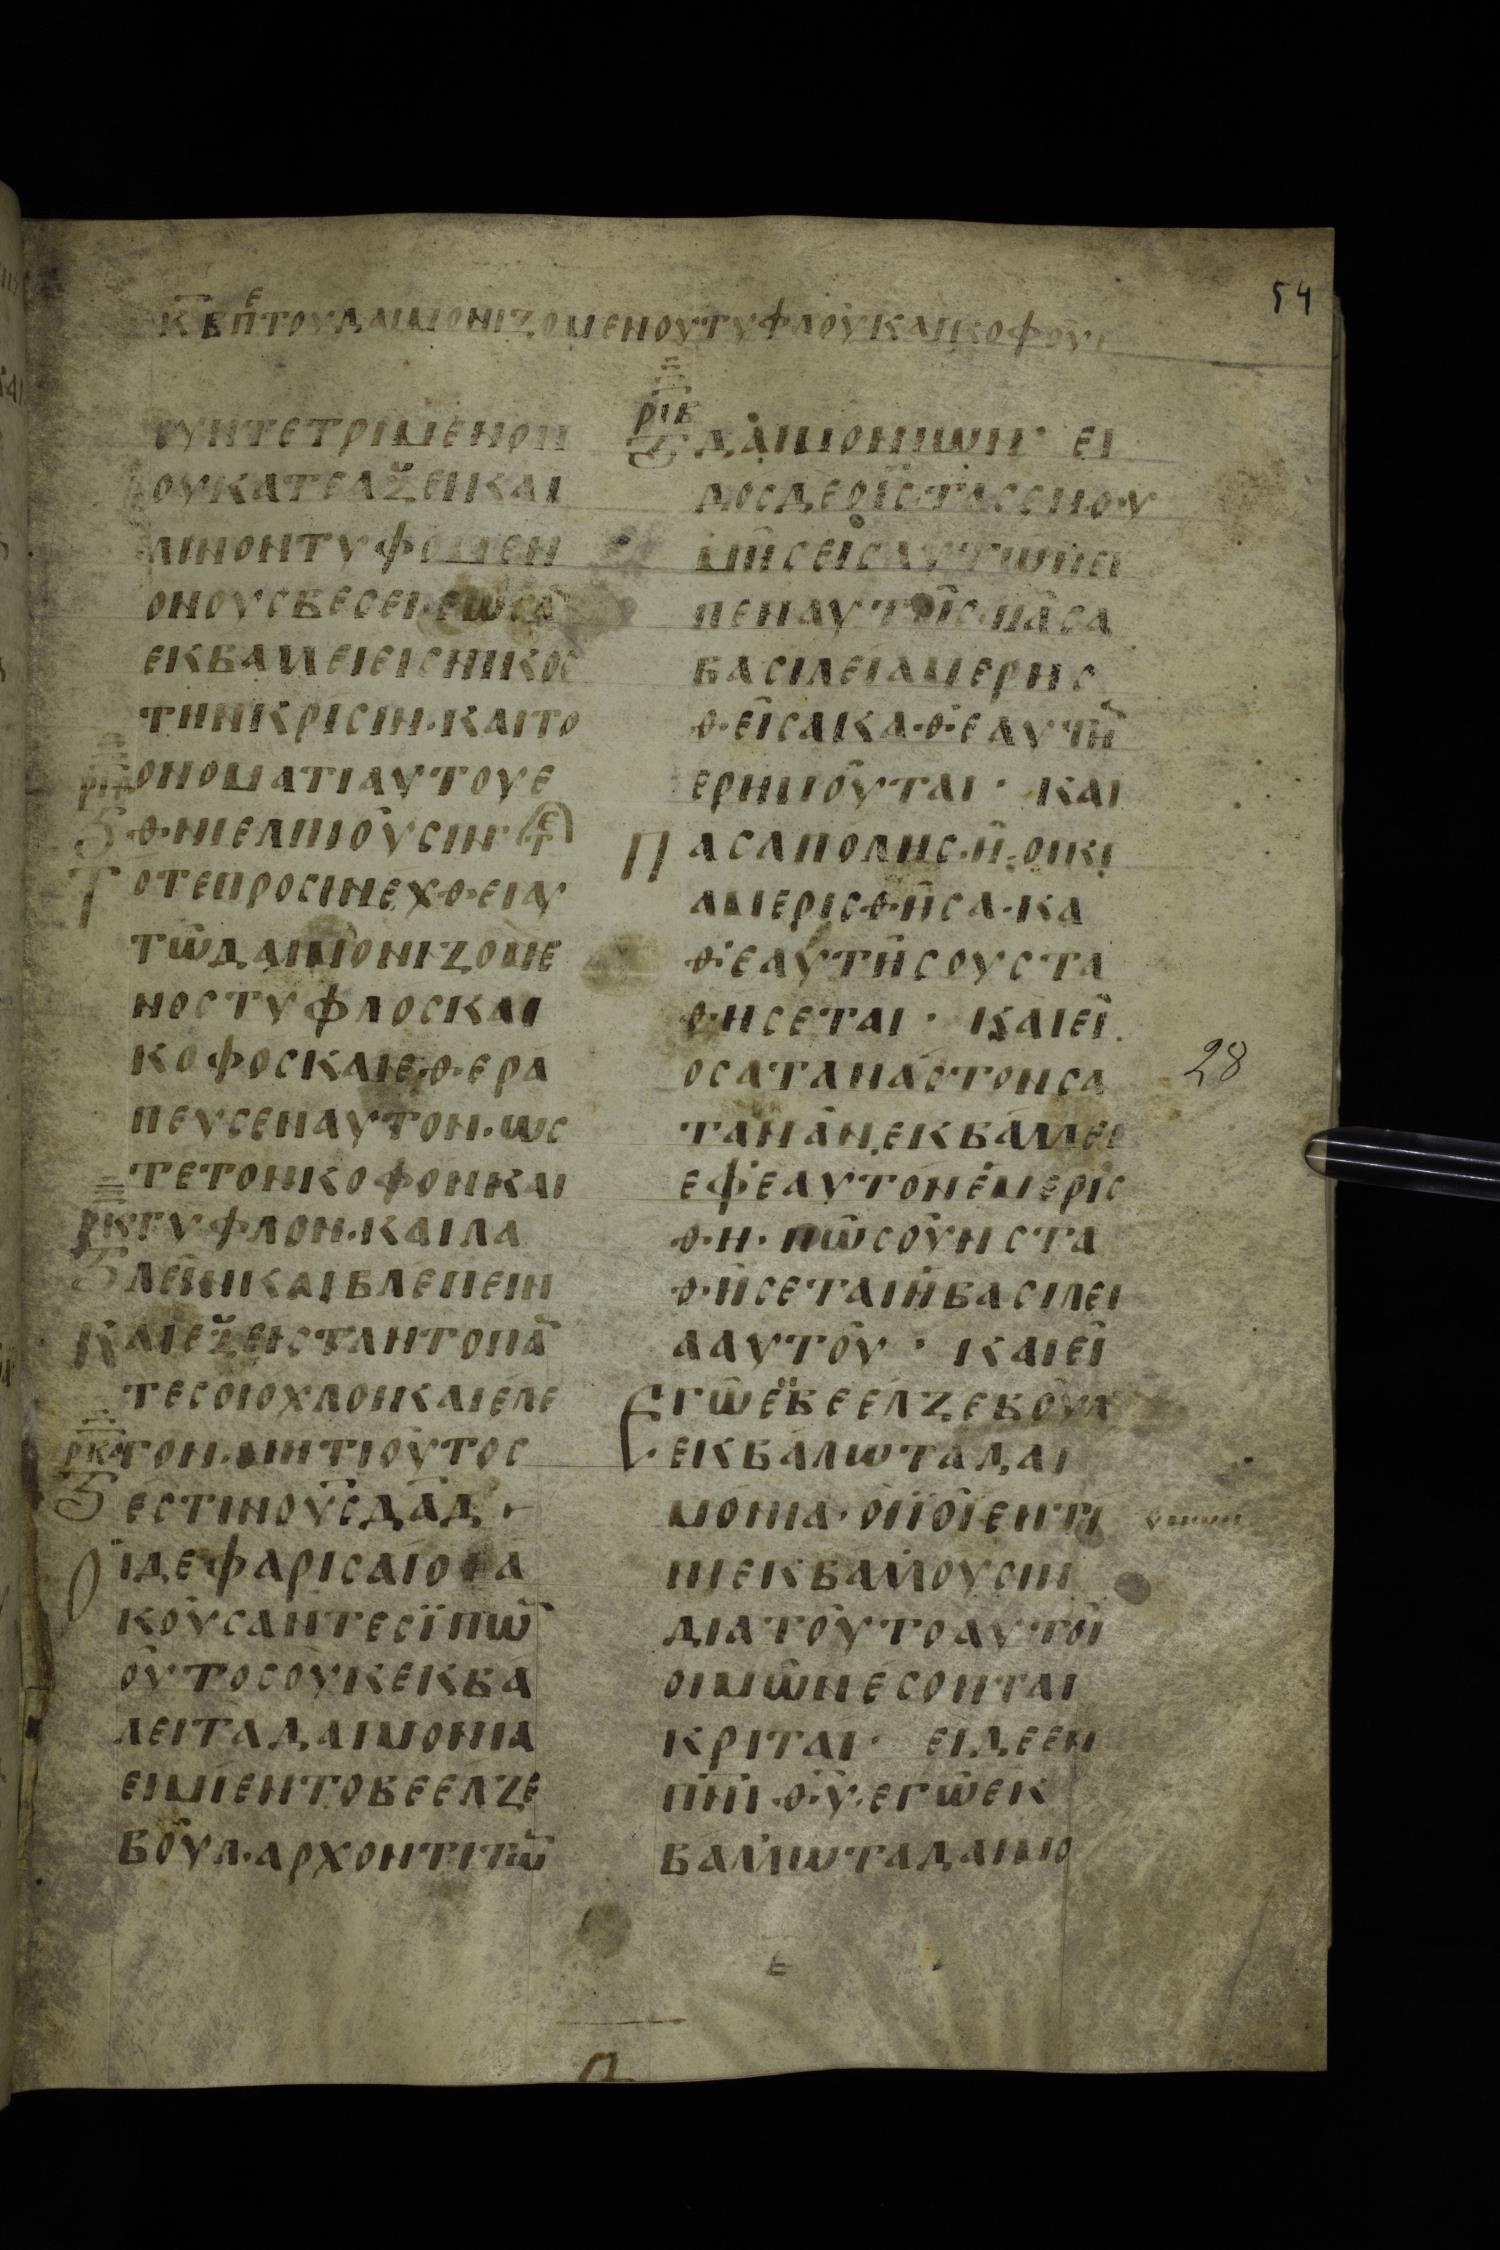 54
ΚΒ ΠΕ ΤΟΥ ΔΑΙΜΟΝΙΖΟΜΕΝΟΥ ΤΥΦΛΟΥ ΚΑΙ ΚΟΦΟΥ
ϹΥΝΤΕΤΡΙΜΕΝΟΝ
ΟΥΚΑΤΕΑΞΕΙΚΑΙ
ΛΙΝΟΝΤΥΦΟΜΕΝ
ΟΝΟΥϹΒΕϹΕΙ·ΕΩϹΑ
ΕΚΒΑΛΛΕΙΕΙϹΝΙΚΟϹ
ΤΗΝΚΡΙϹΙΝ·ΚΑΙΤΟ
ΟΝΟΜΑΤΙΑΥΤΟΥΕ
Θ·ΝΙΕΛΠΙΟΥϹΙΝ·
ΤΟΤΕΠΡΟϹΙΝΕΧΘ·ΕΙΑΥ
ΤΩΔΑΙΜΟΝΙΖΟΜΕ
ΝΟϹΤΥΦΛΟϹΚΑΙ
ΚΟΦΟϹΚΑΙΕ·Θ·ΕΡΑ
ΠΕΥϹΕΝΑΥΤΟΝ·ΩϹ
ΤΕΤΟΝΚΟΦΟΝΚΑΙ
ΤΥΦΛΟΝ·ΚΑΙΛΑ
ΛΕΙΝΚΑΙΒΛΕΠΕΙΝ
ΚΑΙΕΞΕΙϹΤΑΝΤΟΠΑ
ΤΕϹΟΙΟΧΛΟΙΚΑΙΕΛΕ
ΓΟΝ·ΜΗΤΙΟΥΤΟϹ
ΕϹΤΙΝΟΥϹΔΑΔ
ΟΙΔΕΦΑΡΙϹΑΙΟΙΑ
ΚΟΥϹΑΝΤΕϹΪΠΩ
ΟΥΤΟϹΟΥΚΕΚΒΑ
ΛΕΙΤΑΔΑΙΜΟΝΙΑ
ΕΙΜΙΕΝΤΟΒΕΕΛΖΕ
ΒΟΥΛ·ΑΡΧΟΝΤΙΤΩ
ΡΙΒ
ΔΑΙΜΟΝΙΩΝ· ΕΙ
ΔΟϹΔΕΟΙϹΤΑϹΕΝΘ·Υ
ΜΗϹΕΙϹΑΥΤΩΝΕΙ
ΠΕΝΑΥΤΟΙϹ·ΠΑϹΑ
ΒΑϹΙΛΕΙΑΜΕΡΗϹ
Θ·ΕΙϹΑΚΑ·Θ·ΕΑΥΤΗ
ΕΡΗΜΟΥΤΑΙ· ΚΑΙ
ΠΑϹΑΠΟΛΗϹ·Η·ΟΙΚΙ
ΑΜΕΡΙϹ·Θ·ΗϹΑ·ΚΑ
Θ·ΕΑΥΤΗϹΟΥϹΤΑ
Θ·ΗϹΕΤΑΙ· ΚΑΙΕΙ
ΟϹΑΤΑΝΑϹΤΟΝϹΑ
28
ΤΑΝΑΝΕΚΒΑΛΛΕΙ
ΕΦΕΑΥΤΟΝΕΜΕΡΙϹ
Θ·Η· ΠΩϹΟΥΝϹΤΑ
Θ·ΗϹΕΤΑΙΗΒΑϹΙΛΕΙ
ΑΑΥΤΟΥ· ΚΑΙΕΙ
ΕΓΩΕΒΕΕΛΖΕΒΟΥΛ
ΕΚΒΑΛΩΤΑΔΑΙ
ΜΟΝΙΑ·ΟΙΪΟΙΕΝΤΙ
ΝΙΕΚΒΑΛΛΟΥϹΙΝ
ΔΙΑΤΟΥΤΟΑΥΤΟΙ
ΟΙΜΩΝΕϹΟΝΤΑΙ
ΚΡΙΤΑΙ· ΕΙΔΕΕΝ
ΠΝΙ·Θ·Υ·ΕΓΩΕΚ
ΒΑΛΛΩΤΑΔΑΙΜΟ